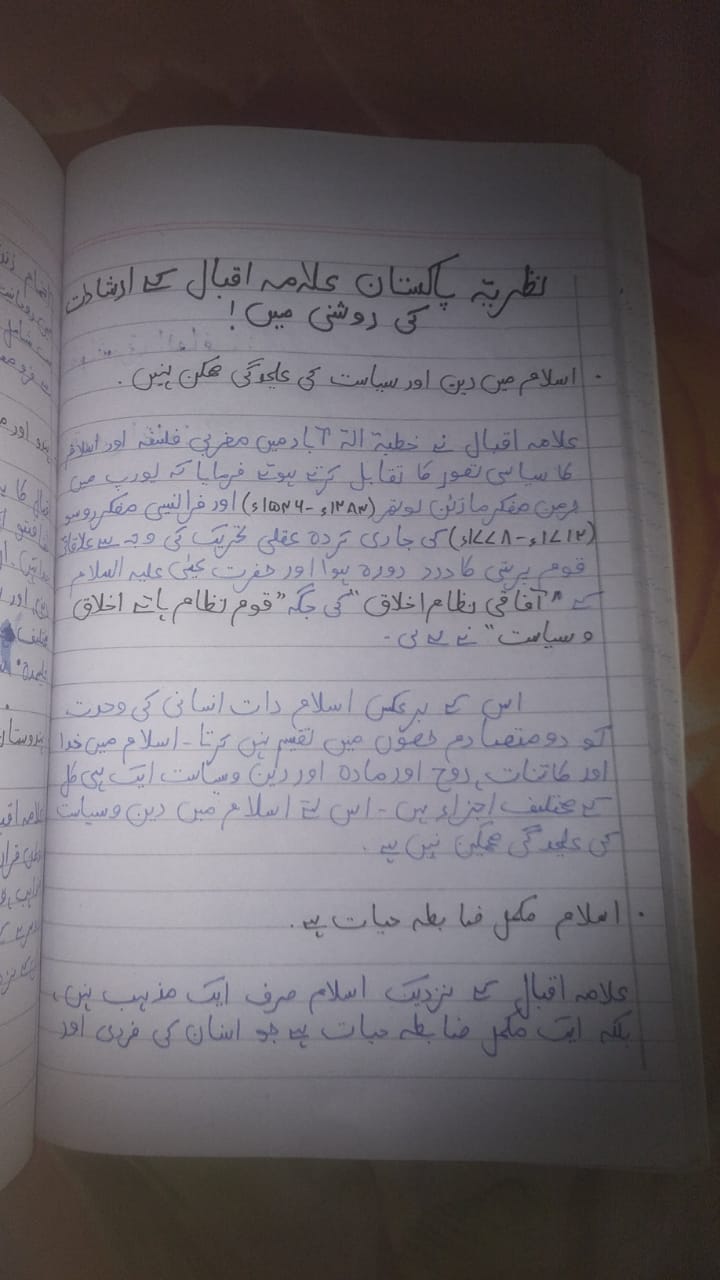 نظریہ پاکستان علامہ اقبال کے ارشادات
کی روشنی میں!
۔ اسلام میں دین اور سیاست کی علیحدگی ممکن نہیں۔
علامہ اقبال نے خطبۃ الہ آباد میں مغربی فلسفہ اور اسلام
کا سیاسی تصور کا تقابل کرتے ہوئے فرمایا کہ یورپ میں
جرمن مفکر مارٹن لوتھر (۱۴۸۳ء-۱۵۴۶ء) اور فرانسیسی مفکر روسو
(۱۷۱۲ء-۱۷۷۸ء) کی جاری کردہ عقلی تحریک کی وجہ سے علاقائی
قوم پرستی کا دور دورہ ہوا اور حضرت عیسٰی علیہ السلام
کے "آفاقی نظام اخلاق" کی جگہ "قوم نظام ہائے اخلاق
و سیاست" نے لے لی۔
اس کے برعکس اسلام ذات انسانی کی وحدت
کو دو متصادم حصوں میں تقسیم نہیں کرتا۔ اسلام میں خدا
اور کائنات، روح اور مادہ اور دین وسیاست ایک ہی کل
کے مختلف اجزاء ہیں۔ اس لئے اسلام میں دین وسیاست
کی علیحدگی ممکن نہیں ہے۔
۔ اسلام مکمل ضابطہ حیات ہے۔
علامہ اقبال کے نزدیک اسلام صرف ایک مذہب نہیں،
بلکہ ایک مکمل ضابطہ حیات ہے جو انسان کی فردی اور